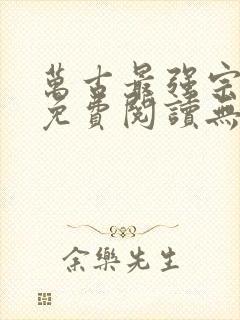 萬古最強宗
免費閱讀無
余樂先生